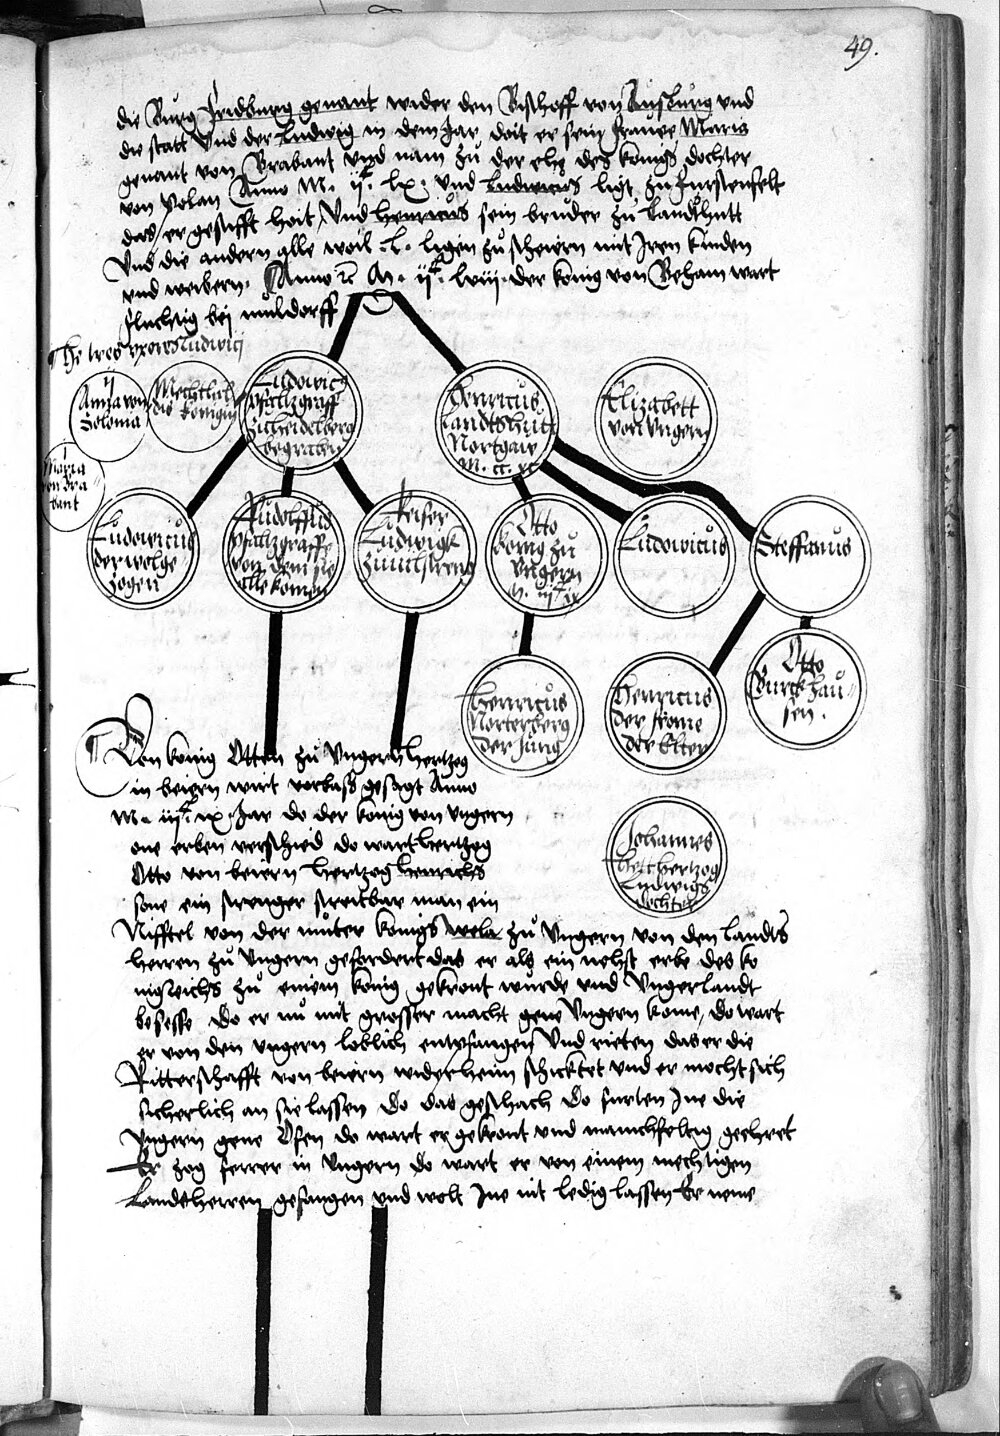 49.
die Burg fridburg genant wider den Bischoff von Auspurg vnd
die statt Vnd der Ludwig in dem Jar doit er sein frauwe Maria
genant von Brabant vnd nam zu der ehe des konigs dochter
von Polan Anno M. ijc. lx. vnd Ludwicus ligt zu furstenfelt
das er gestifft hait Vnd Henricus sein bruder zu Landshutt
Vnd die andern alle woil .l. ligen zu scheiern mit Iren kinden
vnd weibern. Anno M. ijc. lviij. der konig von Beham wart
fluchtig bej muldorff
He tres vxores Ludwici
ij
Anna von
Polonia
Mechthild
des konigs
Ludowicus
pfaltzgraff
zu heidelberg
begraben
Henricus
Landtshutt
Nortgaw
M. cc. xc
Elizabett
von Vngern
j
Maria
von Bra
bant
Ludowicus
der wolge
zogen
Rudolffus
pfaltzgraffe
von dem sie
alle komen
Keiser
Ludwigk
Otto
konig zu
Vngern
M. iijc ix
Ludowicus
Steffanus
Henricus
Norterberg
der Jung
Henricus
der frome
der Elter
Otto
Burckhau
sen.
Von konig Otten zu Vngern hertzog
in beiern wirt vorbass gesagt Anno
M. iijc. ix. Jar do der konig von vngern
one erben verschied do wart hertzog
Otto von beiern hertzog henrichs
sone ein strenger streitbar man ein
Nifftel von der muter konigs wela zu Vngern von den landts
herren zu Vngern gefordert das er als ein nehst erbe des ko
nigreichs zu einem konig gekront wurde vnd Vngerlandt
besesse Do er nu mit grosser macht gene Vngern kome, do wart
er von den vngern loblich entpfangen Vnd rieten das er die
Ritterschafft von beiern wider heim schicktet vnd er mocht sich
sicherlich an sie lassen Do das geschach Do furten Ine die
Vngern gene Ofen do wart er gekront vnd manchfeltig geehret
Er zog ferrer in Vngern do wart er von einem mechtigen
Landtherren gefangen vnd wolt Ine nit ledig lassen Er neme
Johannes
hett hertzog
Ludwigs
dochter